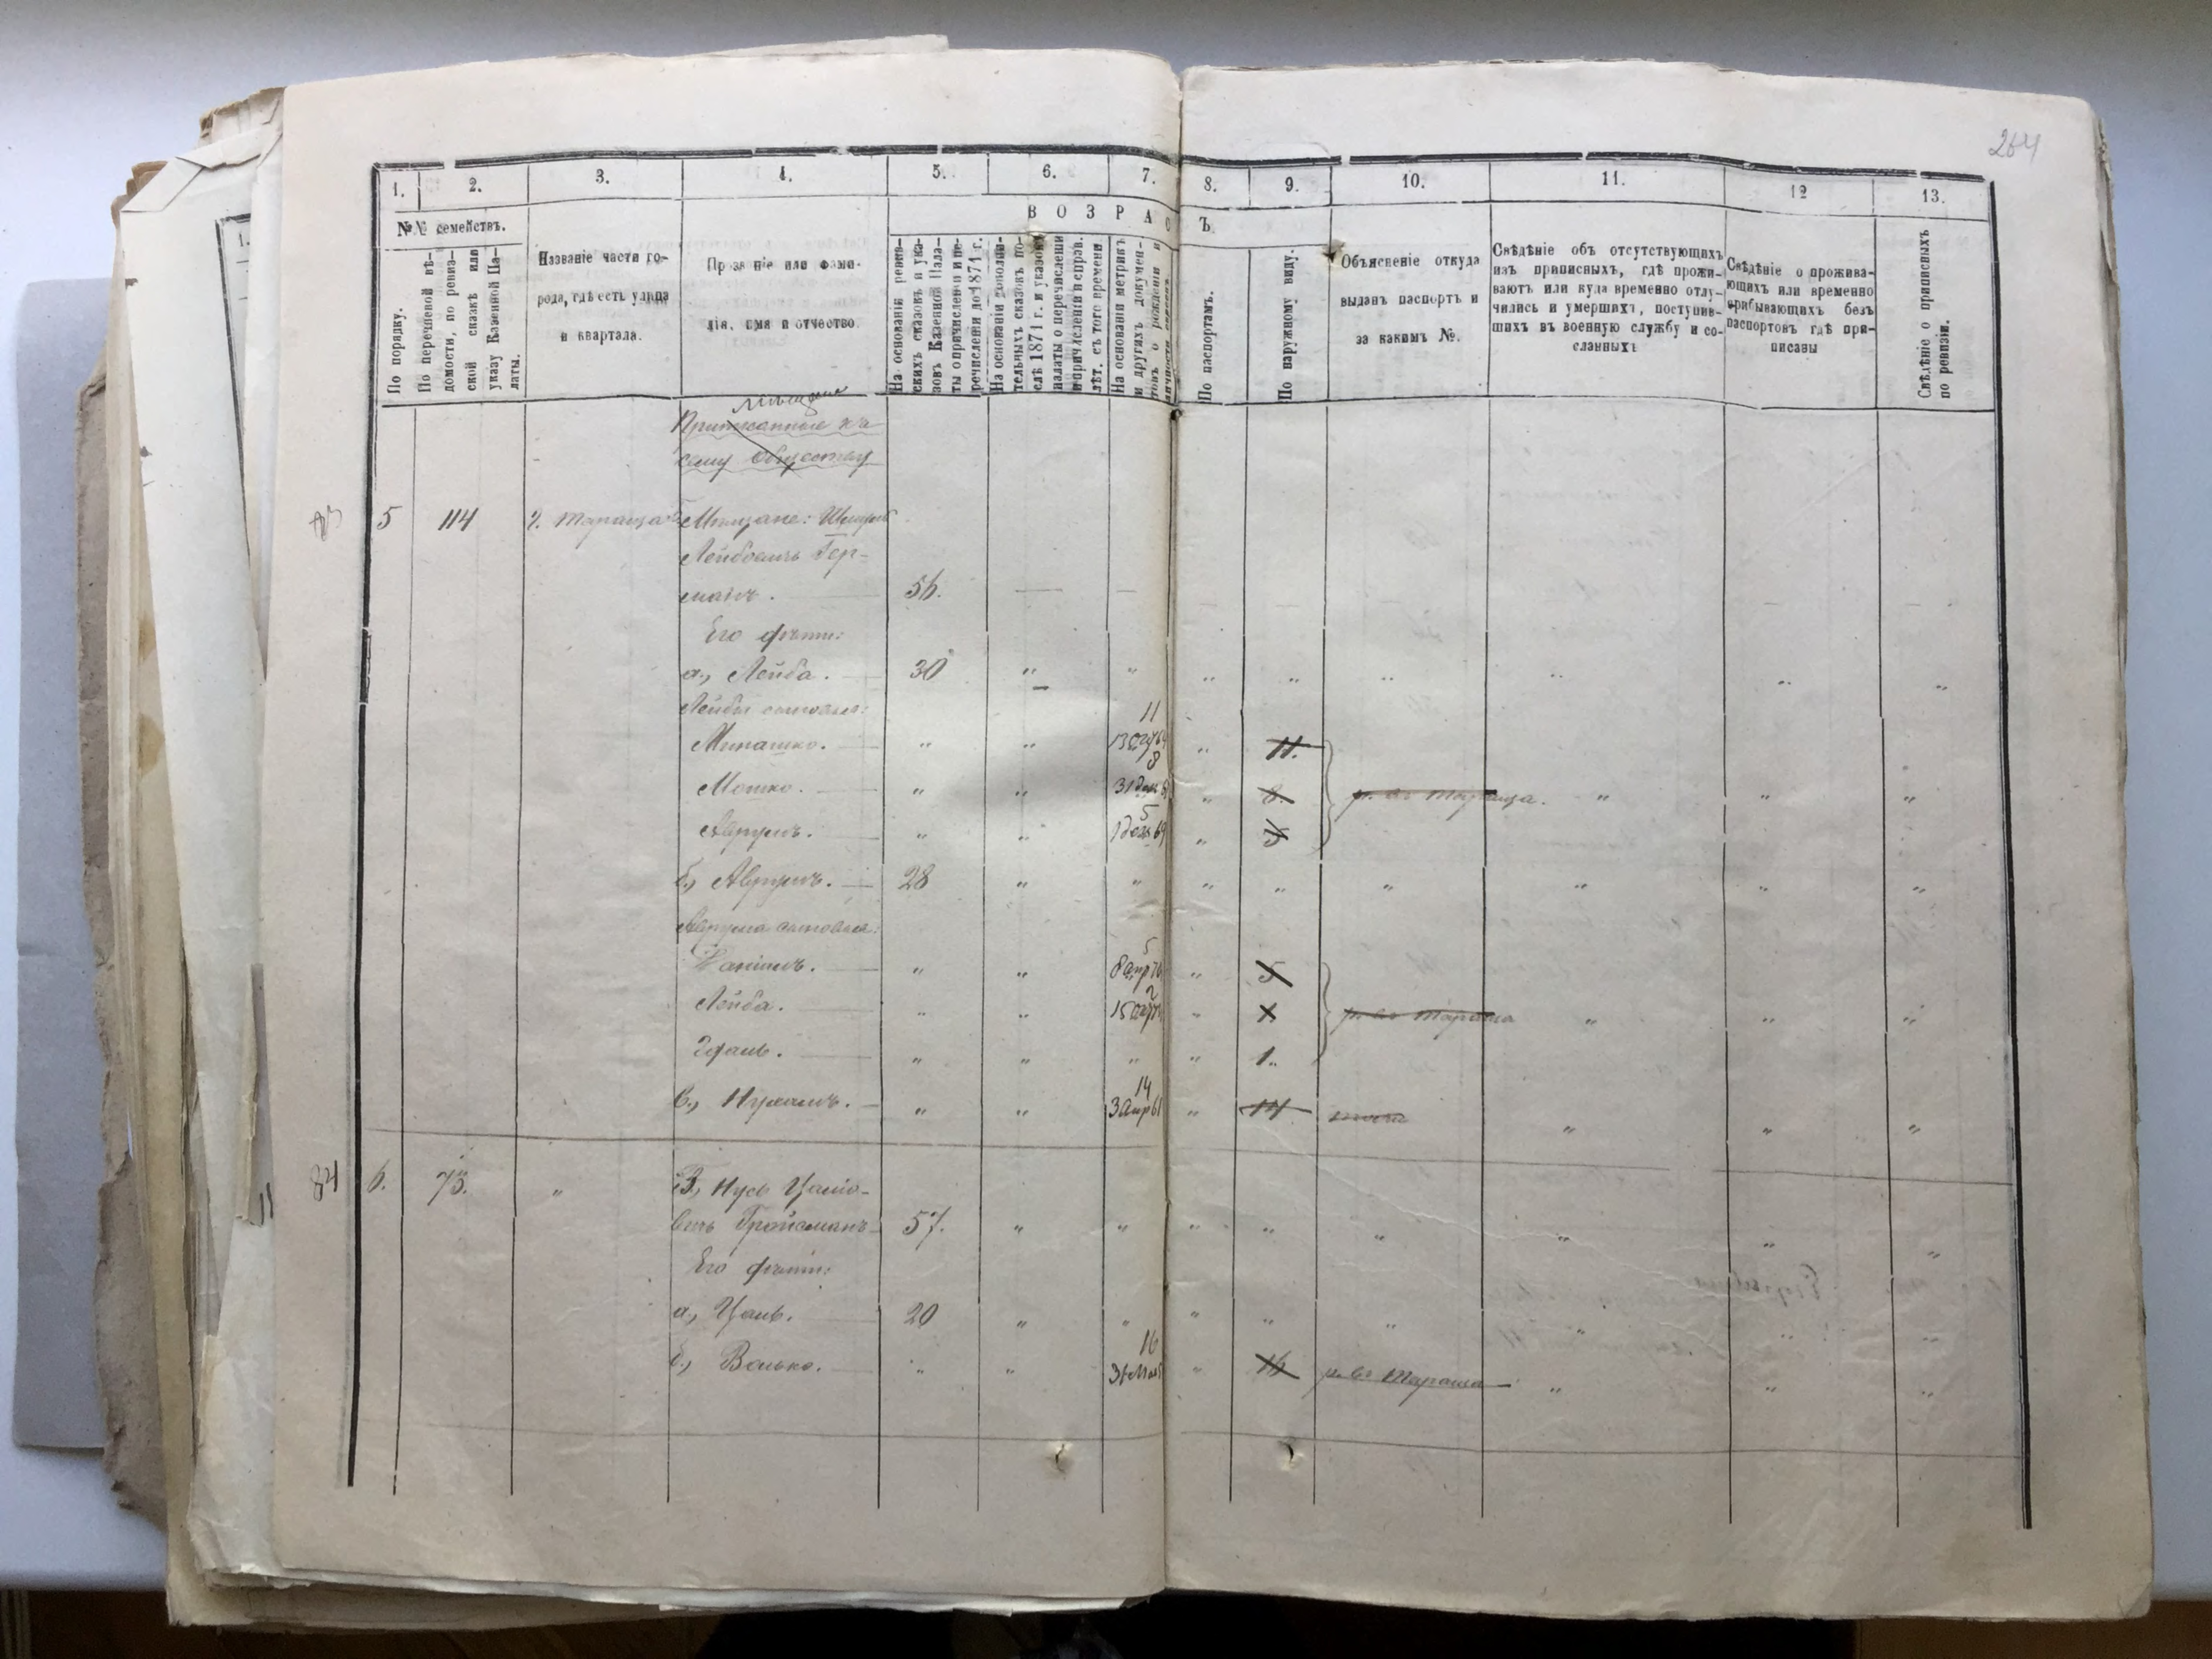 264
1. 2. 3. 4. 5. 6. 7. 8. 9. 10. 11. 12 13.
№№ семействъ.
По порядку.
По перечневой вѣ-
домости, по ревиз-
ской сказкѣ или
указу Казенной Па-
латы.
Названіе части го-
рода, гдѣ есть улица
и квартала.
Прозваніе или фами-
лія, имя и отчество
ВОЗРАСТЪ.
На основаніи ревиз-
скихъ сказокъ и ука-
зовъ Казенной Пала-
ты о причисленіи и пе-
речисленіи до 1871 г.
На основаніи дополни-
тельныхъ сказокъ по-
слѣ 1871 г. и указовъ
палаты о перечисленіи
и причисленіи и справ.
лѣт. съ того времени.
На основаніи метрикъ
и другихъ докумен-
товъ о рожденіи и
По паспортамъ.
По наружному виду.
Объясненіе откуда
выданъ паспортъ и
за какимъ №.
Свѣдѣніе объ отсутствующихъ
изъ приписныхъ, гдѣ прожи-
ваютъ или куда временно отлу-
чились и умершихъ, поступив-
шихъ въ военную службу и со-
сланныхъ
Свѣдѣніе о прожива-
ющихъ или временно
прибывающихъ безъ
паспортовъ гдѣ при-
писаны
Свѣдѣніе о приписныхъ
по ревизіи.
Мѣщане
Приписанные къ
сему обществу
83 5 114 г. Тараща Мѣщане:
Лейбовичъ Гер-
манъ. 56. — —
Его дѣти:
а., Лейба. 30 " "
Лейбы сыновья: 11
Минашко. " " 13 64 " 11.
8
Мошко. " " 31 дек " 8. р. въ Тараща. " " "
5
Аврумъ. " " 1 дек 69 " 5
б., Аврумъ. 28 " " " " " " " "
Аврума сыновья:
5
" " 8 апр " 5
2
Лейба. " " 15 " р. въ Тараща " " "
" " " " 1.
14
в., Нухимъ. " " 3 Апр 61 " 14. тоже " " "
84 6. 73. " Нусь Цалiо-
вичъ Гройсманъ 57. " " " " " " " "
Его дѣти:
а., Цаль. 20 " " " " " " " "
16
б., Волько. " " 31 " 16 р. въ Тараща " " "